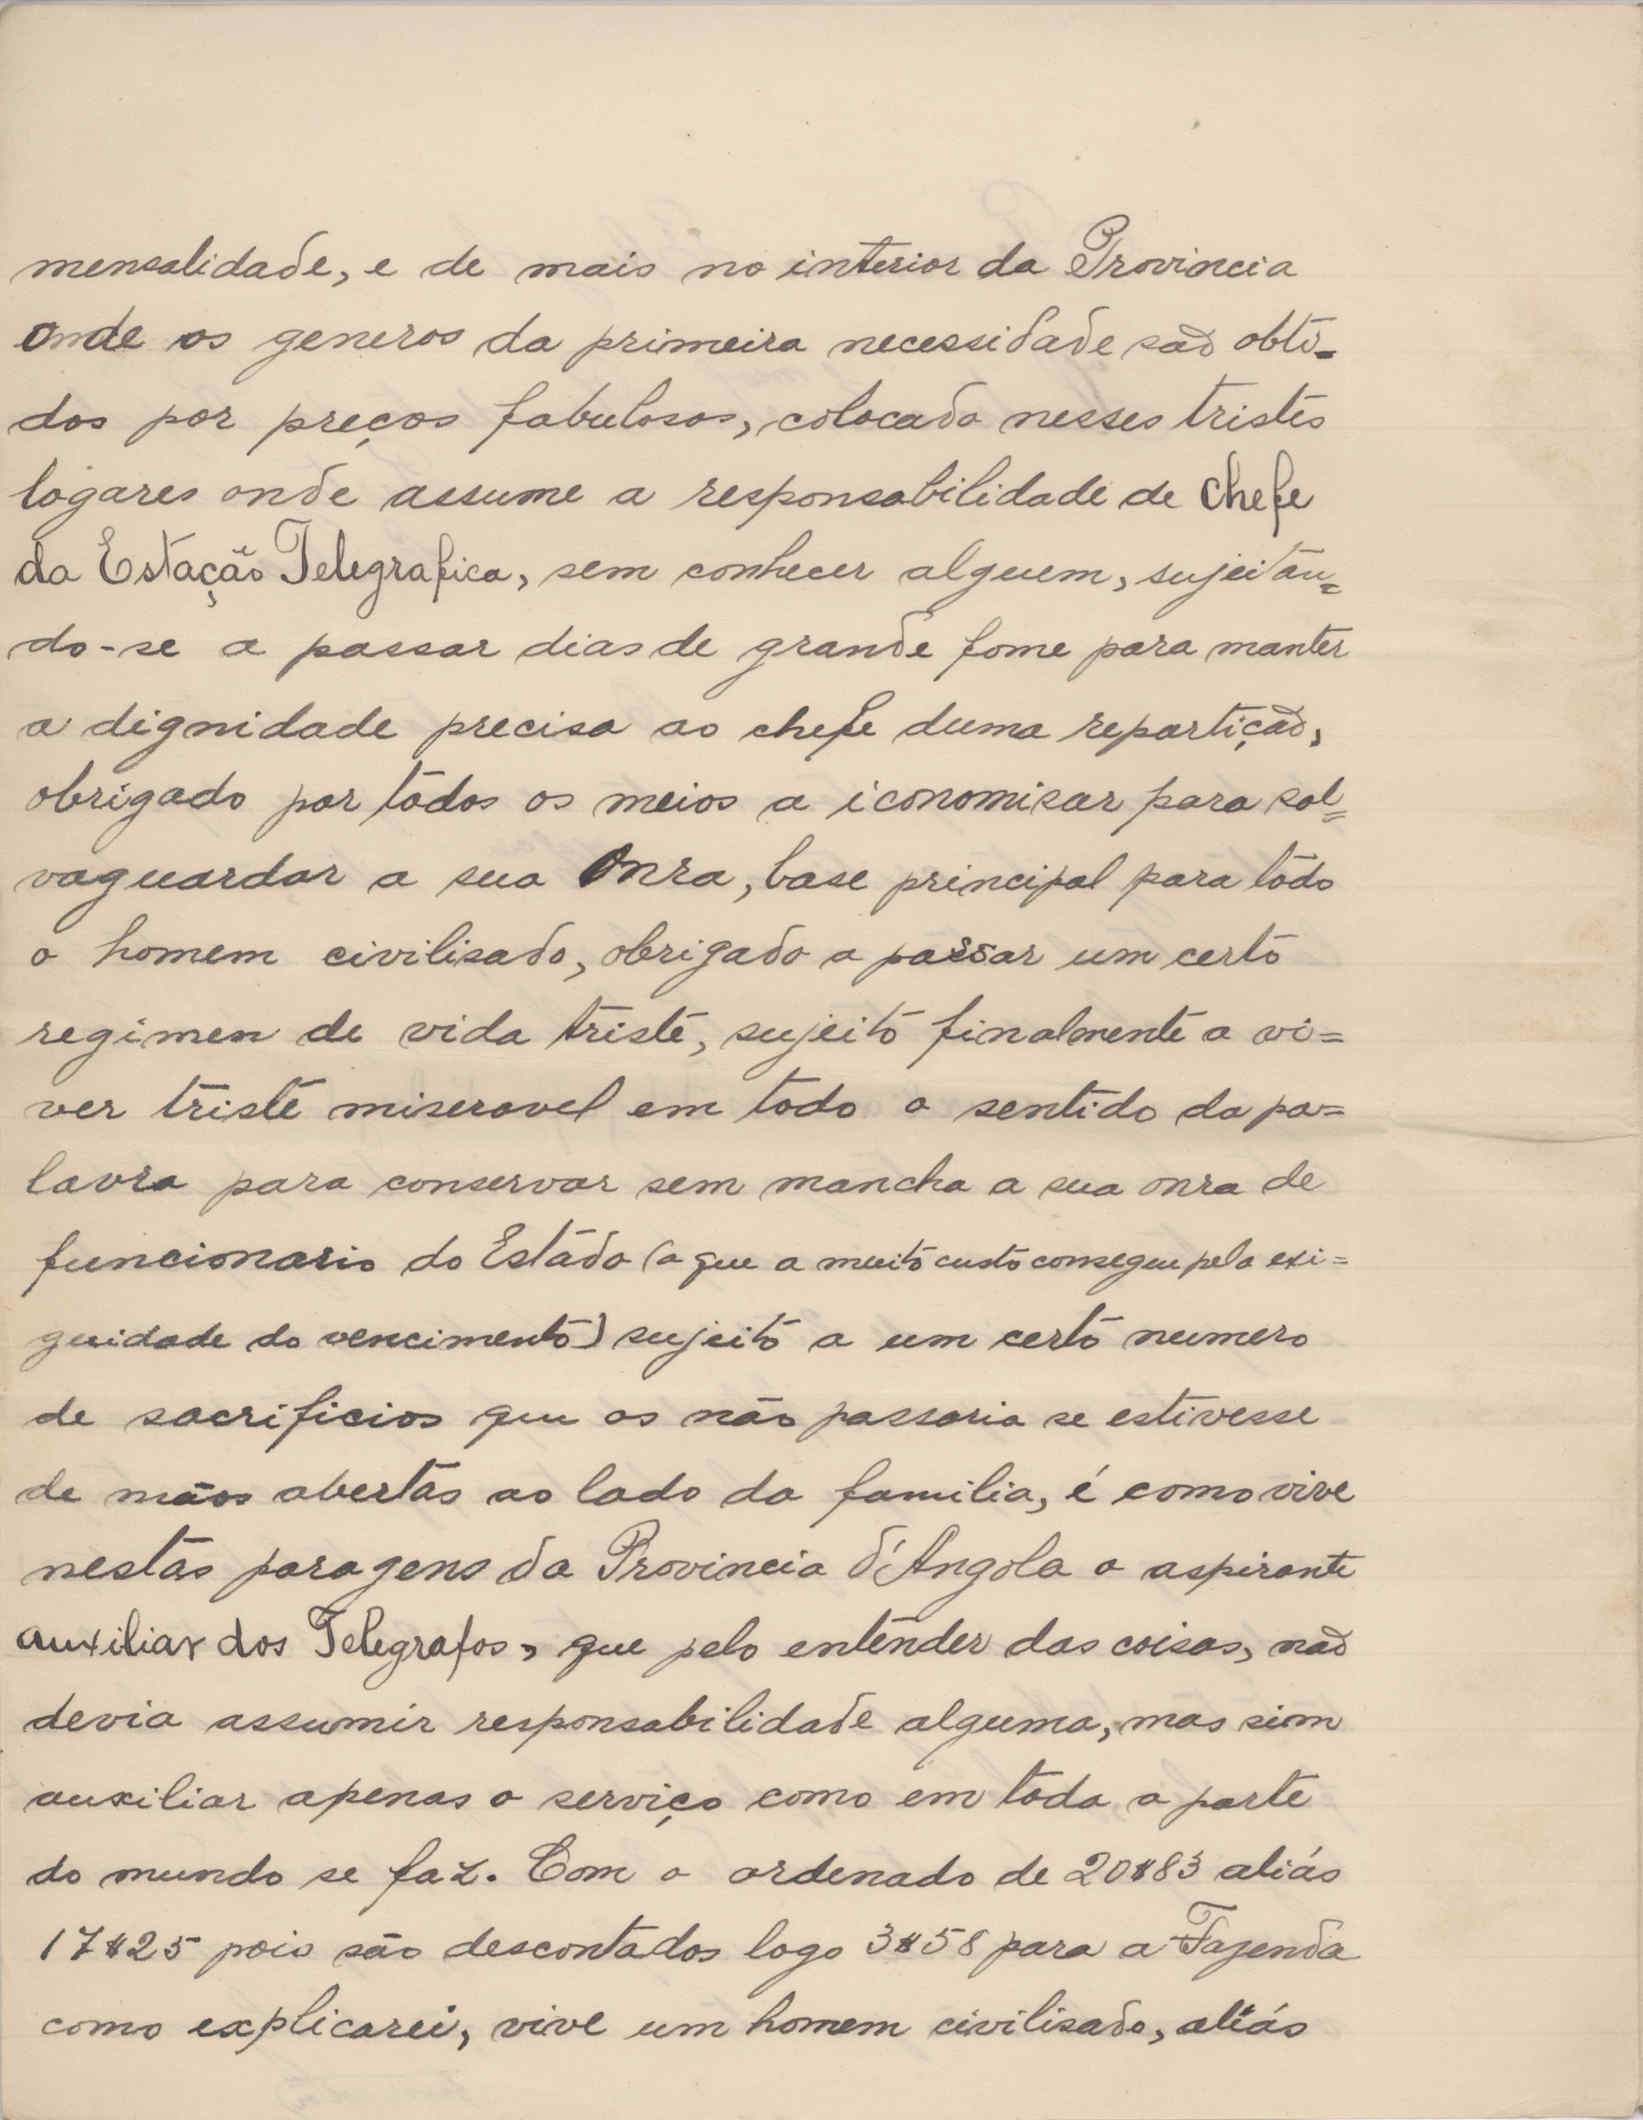 mensalidade, e de mais no interior da Provincia
onde os generos da primeira necessidade são obti-
dos por preços fabulosos, colocado nesses tristes
logares onde assume a responsabilidade de chefe
da Estação Telegrafica, sem conhecer alguem, sujeitan=
do-se a passar dias de grande fome para manter
a dignidade precisa ao chefe duma repartição,
obrigado por todos os meios a iconomisar para sal=
vaguardar a sua Onra, base principal para todo
o homem civilisado, obrigado a passar um certo
regimen de vida triste, sujeito finalmente a vi=
ver triste miseravel em todo o sentido da pa=
lavra para conservar sem mancha a sua onra de
funcionario do Estado (o que a muito custo consegue pela exi=
guidade do vencimento) sujeito a um certo numero
de sacrificios que os não passaria se estivesse
de mãos abertas ao lado da familia, é como vive
nestas paragens da Provincia d'Angola o aspirante
auxiliar dos Telegrafos, que pelo entender das coisas, não
devia assumir responsabilidade alguma, mas sim
auxiliar apenas o serviço como em toda a parte
do mundo se faz. Com o ordenado de 20$83 aliás
17$25 pois são descontados logo 3$58 para a Fazenda
como explicarei, vive um homem civilisado, aliás